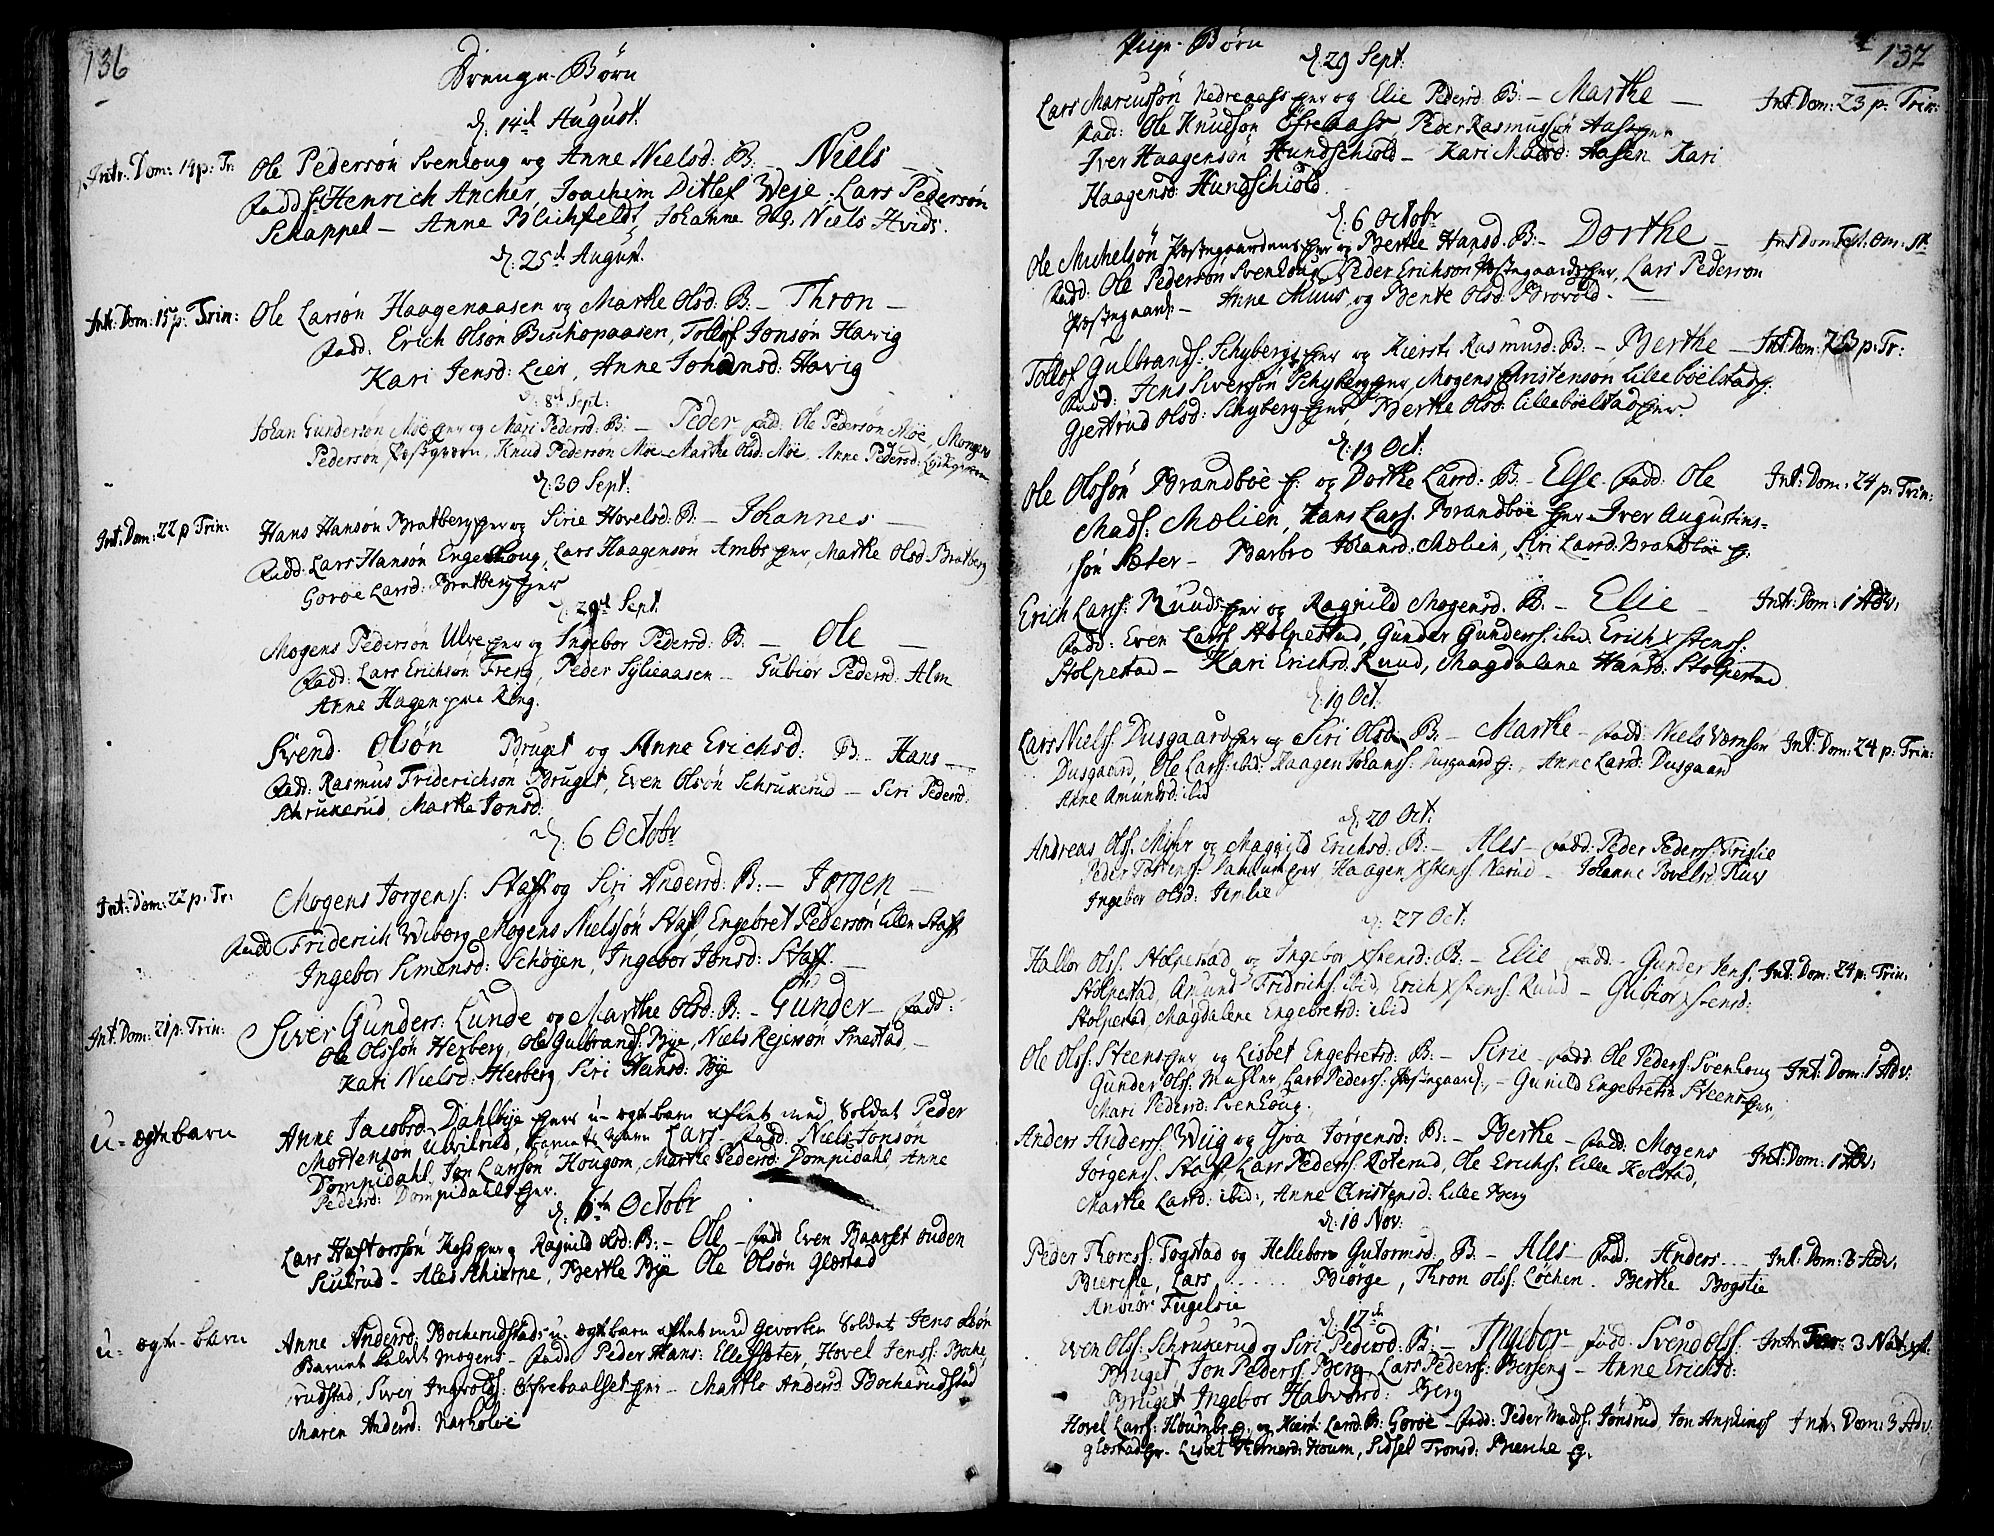 136
Drenge-Børn
d: 14de August:
Intr: Dom: 14 p: Tr: Ole Pedersøn Svenhoug og Anne Nielsd: B: – Niels –
Fadd: Sr Henrich Ancher, Joachim Ditlef Weje, Lars Pedersøn
Schappel – Anne Blichfeldt, Johanne Niels Hvids:
d: 25de August.
Int: Dom: 15 p: Trin: Ole Larsøn Haagenaasen og Marthe Olsd: B: – Thron –
Fadd: Erich Olsøn Bischopaasen, Tollof Jonsøn Havig
Kari Jensd: Lier, Anne Johansd: Havig
d: 8de Sept:
Johan Gundersøn Møe og Mari Pedersd: B: – Peder Fad: Ole Pedersøn Møe, Mogens
Pedersøn, Knud Pedersøn Møe – Marthe Olsd: Møe, Anne Pedersd:
d: 30 Sept:
Int: Dom: 22 p Trin: Hans Hansøn Bratberg og Sirie Hovelsd: B: – Johannes –
Fadd: Lars Hansøn Engehoug, Lars Haagensøn Ambs, Marthe Olsd Bratberg
Goroe Larsd: Bratberg
d: 29de Sept:
Mogens Pedersøn Ulve og Ingebor Pedersd: B: – Ole –
Fadd: Lars Erichsøn Freng, Peder Sylieaasen – Gubior Pedersd: Alm
Anne Hagen paa Ring.
Svend Olsøn Bruget og Anne Erichsd: B – Hans –
Fadd: Rasmus Friderichson Bruget, Even Olsøn Schruxerud – Siri Pedersd:
Schruxerud, Marthe Jonsd:
d: 6 Octobr
Int: Dom: 22 p: Tr: Mogens Jorgens: Staff og Siri Andersd: B: – Jørgen –
Fadd Friderich Wiborg, Mogens Nielssøn Staf, Engebret Pedersøn Lilen Staff
Ingebor Simensd: Schøgen, Ingebor Jonsd: Staff. –
Int: Dom: 21 p: Trin: Siver Gunders: Lunde og Marthe Olsd: B: – Gunder – Fadd:
Ole Olssøn Herberg, Ole Gulbrands: Bye, Niels Rejersøn Smestad, –
Kari Nielsd: Herberg, Siri Hansd: Bye
u-ægtebarn Anne Jacobsd: Dahlbye u-ægtebarn aflet med Soldat Peder
Mortenson Ulvilrud, Barnets Navn Lars – Fadd: Niels Jonsøn
Dompidahl, Jon Larssøn Hougom, Marthe Pedersd: Dompidahl, Anne
Pedersd: Dompidahls
d: 6te Octobr
Lars Haftorssøn og Ragnild Olsd: B: – Ole – Fadd Even Baarset ouden
Siulrud – Ales Schierpe, Berthe Bye Ole Olsøn Glæstad
u-ægte-barn Anne Andersd: Bocherudstads u-ægtebarn aflet med Gevorben Soldat Jens Olsøn
Barnet kaldt Mogens – Fadd: Peder Hans: Ellefsæter, Hovel Jens: Boche
rudstad, Siver Ingvolds: Øfrebaalset – Marthe Andersd Bocherudstad
Maren Andersd: Narholve
137
Pige-Børn
d: 29 Sept:
Lars Marcussøn Nedregass og Elie Pedersd: B: – Marthe – Int: Dom: 23 p: Trin:
Fadd: Ole Knudsøn Øfregass, Peder Rasmussøn Aass
Iver Haagensøn Hundschiold – Kari Madsd: Aasen Kari
Haagensd: Hundschiold
d: 6 Octobr
Ole Michelsøn og Berthe Hansd: B: – Dorthe –
Fadd: Ole Pedersøn Svenhoug, Peder Erichson, Lars Pederson
Anne Muus, og Bente Olsd: Brovold –
Tollof Gulbrands: Schybergs og Kiersti Rasmusd: B: – Berthe – Int: Dom: 23 p: Tr:
Fadd: Jens Siversøn Schyberg, Mogens Christenson Lilleboelstad
Gjertrud Olsd: Schyberg, Berthe Olsd: Lilleboelstad.
d: 13 Oct:
Ole Olssøn Brandboe og Dorthe Larsd: B. – Else. Fadd: Ole Int: Dom: 24 p: Trin:
Mads: Mælien, Hans Lars: Brandboe, Iver Augustins-
søn Sæter – Barbro Johansd: Mælien, Siri Larsd: Brandboe
Erich Lars: Ruuds og Ragnild Mogensd: B: – Elie – Int: Dom: 1 Adv:
Fadd: Even Lars Stolpestad, Gunder Gunders: ibid. Erich Xstens:
Stolpestad – Kari Erichsd: Ruud, Magdalene Hansd: Stolpestad
d: 19 Oct:
Lars Niels: Dusgaard og Siri Olsd: B: – Marthe – Fadd: Niels Værnsøn Int: Dom: 24 p: Trin:
Dusgaard, Ole Lars: ibid: Haagen Johans: Dusgaard, Anne Larsd: Dusgaard
Anne Amundsd: ibid
d: 20 Oct:
Andreas Ols: Myhr og Magnild Erichsd: B: – Ales – Fadd: Peder Peders: Frislie
Peder Tostens: Haagen Xstens: Narud – Johanne Povelsd: Ruv
Ingebor Olsd: Jemlie
d: 27 Oct:
Hallor Ols: Stolpestad og Ingebor Xstensd: B: – Elie Fadd – Gunder Jens: Int: Dom: 24 p: Trin:
Stolpestad, Amund Fridrichs: ibid, Erich Xstens: Ruud – Gubior Xstensd:
Stolpestad, Magdalene Engebretsd: ibid
Ole Ols: Steens og Lisbet Engebretsd: B: – Sirie – Fadd: Ole Peders: Svenhoug Int: Dom: 1 Adv:
Gunder Ols: Muhler Lars Peders: – Gunild Engebretsd: Steens
Mari Pedersd: Svenhoug.
Anders Anders: Wiig og Goa Jørgensd: B: – Berthe – Fadd: Mogens Int: Dom: 1 Adv:
Jørgens: Staff, Lars Peders: Roterud, Ole Erichs: Lille Kolstad,
Marthe Larsd: ibid:, Anne Christensd: Lille Berg
d: 10 Nov:
Peder Thores: Togstad og Hellebor Gutormsd: B – Ales – Fadd. Anders ... Int: Dom: 3 Adv:
Bierche, Lars ..... Biørge, Thron Ols: Løchen. Berthe Bogstie
Anbior Fugelsie
d: 17de
Even Ols: Schruxerud og Siri Pedersd: B: – Ingebor – Fadd: Svend Ols: Intr: 3 Nat:
Bruget, Jon Peders: Berg, Lars Peders: Berseng – Anne Erichsd:
Bruget Ingebor Halvorsd: Berg
Hovel Lars: og Larsd: B: Goroe – Fadd: Peder Mads: Jønsrud, Jon Int: Dom: 3 Adv:
Glæstad – Lisbet Houm, Sidsel Tronsd: Bierche